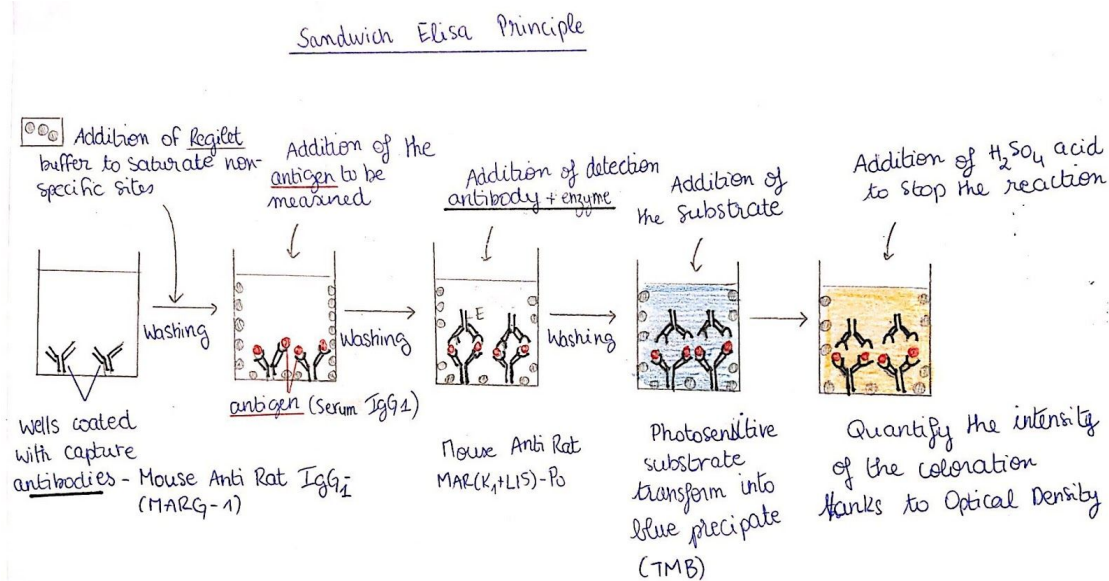 Sandwich Elisa Principle
Addition of Regilet
buffer to saturate non-
specific sites
Addition of the
antigen to be
measured
Addition of detection
antibody + enzyme
Addition of
the substrate
Addition of H2SO4 acid
to stop the reaction
Washing
Washing
Washing
E
antigen (Serum IgG1)
wells coated
with capture
antibodies - Mouse Anti Rat IgG1
(MARG-1)
Mouse Anti Rat
MAR(K1+LIS)-Po
Photosensitive
substrate
transform into
blue precipate
(TMB)
Quantify the intensity
of the coloration
thanks to Optical Density